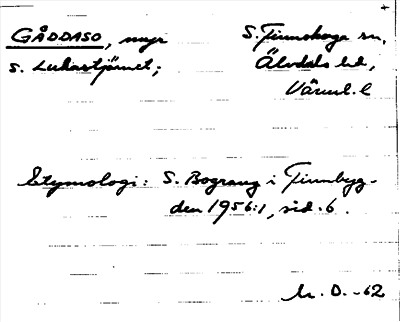 GÅDDASO, myr
S. Finnskoga sn,
s. Lukastjärnet;
Älvdals hd,
Värml. l
Etymologi: S. Bograng i Finnbyg-
den 1956:1, sid. 6.
M. D. -62